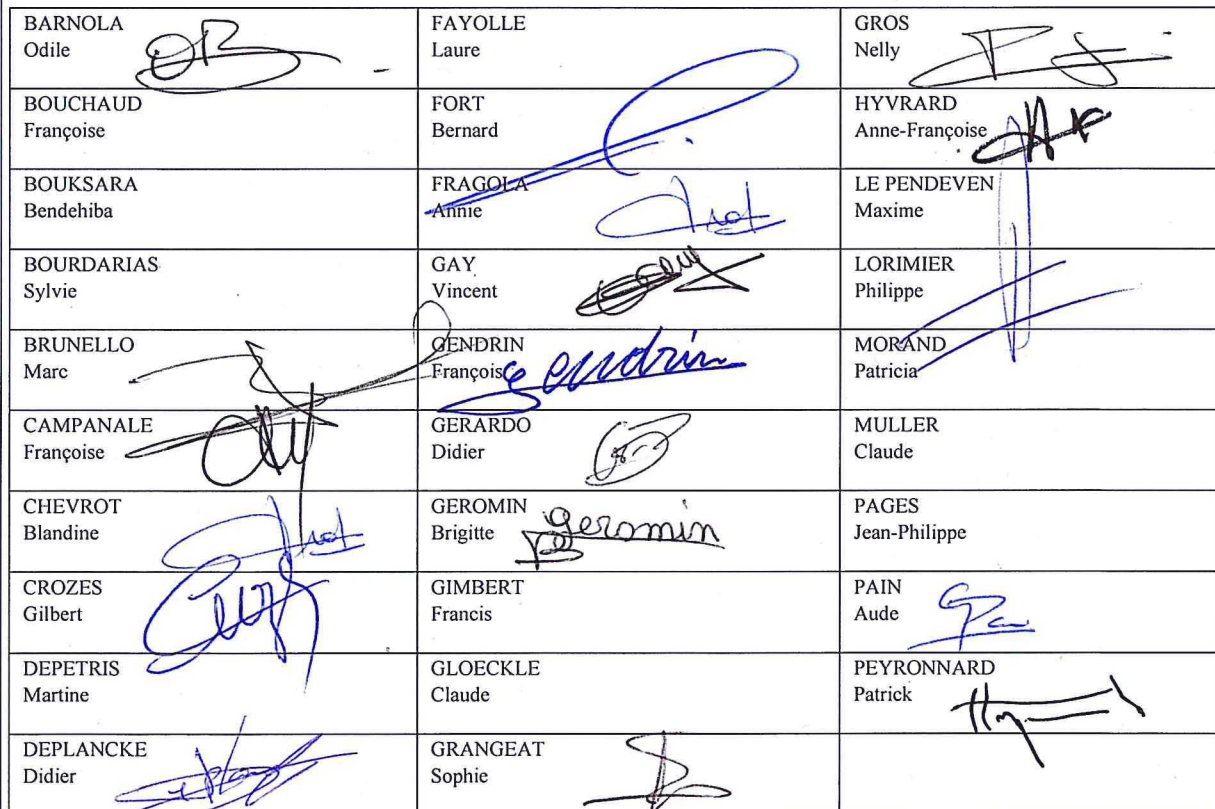 BARNOLA
Odile
OB
FAYOLLE
Laure
GROS
Nelly
BOUCHAUD
Françoise
FORT
Bernard
HYVRARD
Anne-Françoise
BOUKSARA
Bendehiba
FRAGOLA
Annie
LE PENDEVEN
Maxime
BOURDARIAS
Sylvie
GAY
Vincent
LORIMIER
Philippe
BRUNELLO
Marc
GENDRIN
François
Gendrin
MORAND
Patricia
CAMPANALE
Françoise
GERARDO
Didier
MULLER
Claude
CHEVROT
Blandine
GEROMIN
Brigitte
geromin
PAGES
Jean-Philippe
CROZES
Gilbert
GIMBERT
Francis
PAIN
Aude
DEPETRIS
Martine
GLOECKLE
Claude
PEYRONNARD
Patrick
DEPLANCKE
Didier
GRANGEAT
Sophie